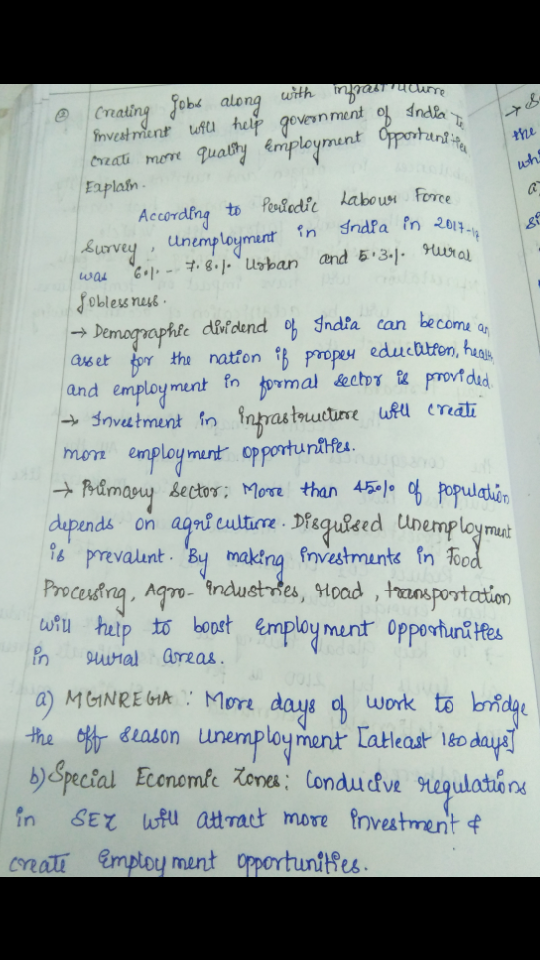 Creating jobs along with infrastructure
investment will help government of India to
create more quality Employment Opportunities
Explain.
According to Periodic Labour Force
Survey, Unemployment in India in 2017-18
was 6.1. - 7.8.1. Urban and 5.3.1. rural
Joblessness.
→ Demographic dividend of India can become an
asset for the nation if proper education, health
and employment in formal sector is provided.
→ Investment in Infrastructure will create
more employment opportunities.
→ Primary Sector: More than 45% of population
depends on agriculture. Disguised Unemployment
is prevalent. By making investments in Food
Processing, Agro-industries, Road, transportation
will help to boost Employment Opportunities
in rural areas.
a) MGNREGA: More days of work to bridge
the off season unemployment [atleast 180 days]
b) Special Economic Zones: Conducive regulations
in SEZ will attract more investment &
create Employment opportunities.
→ S
the
whi
a)